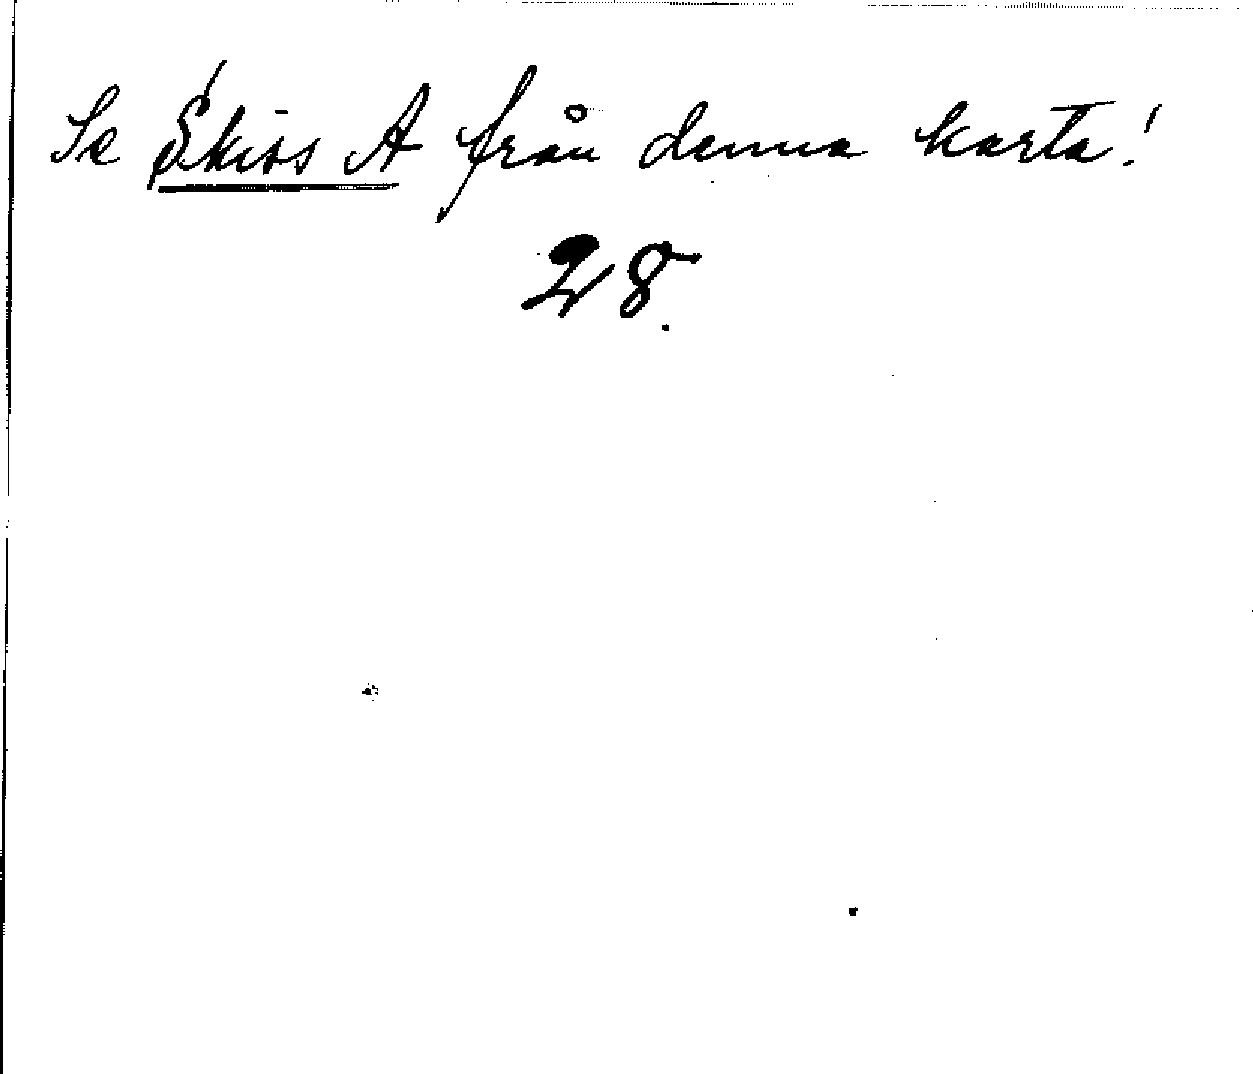 Se Skiss A från denna karta!
28.